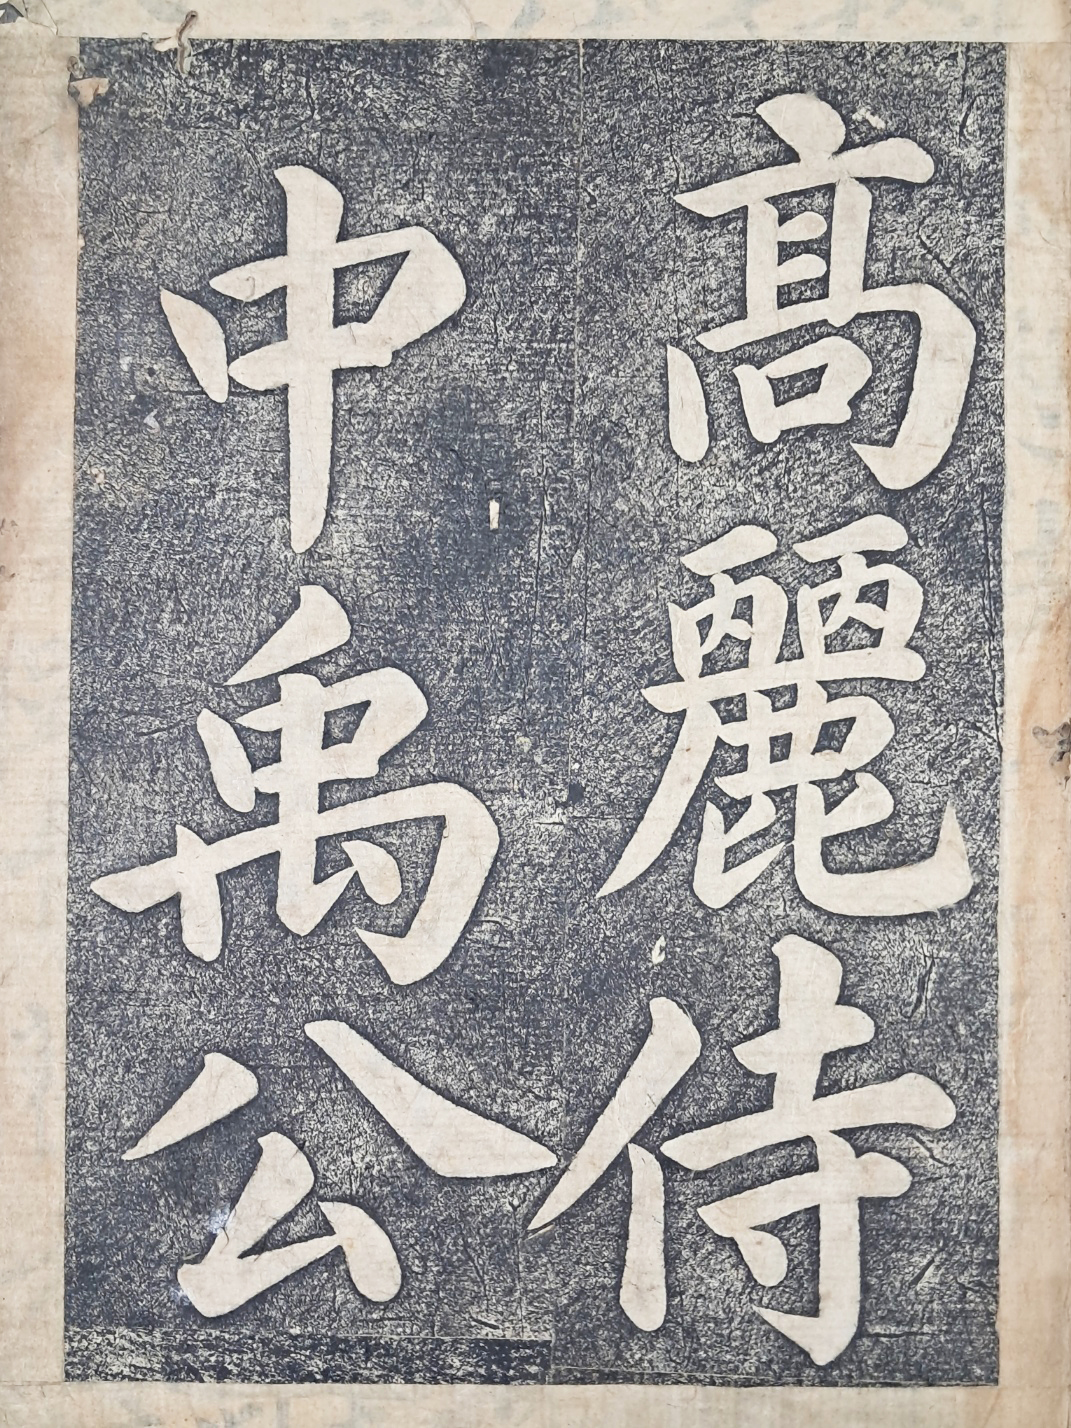 髙麗侍
中禹公